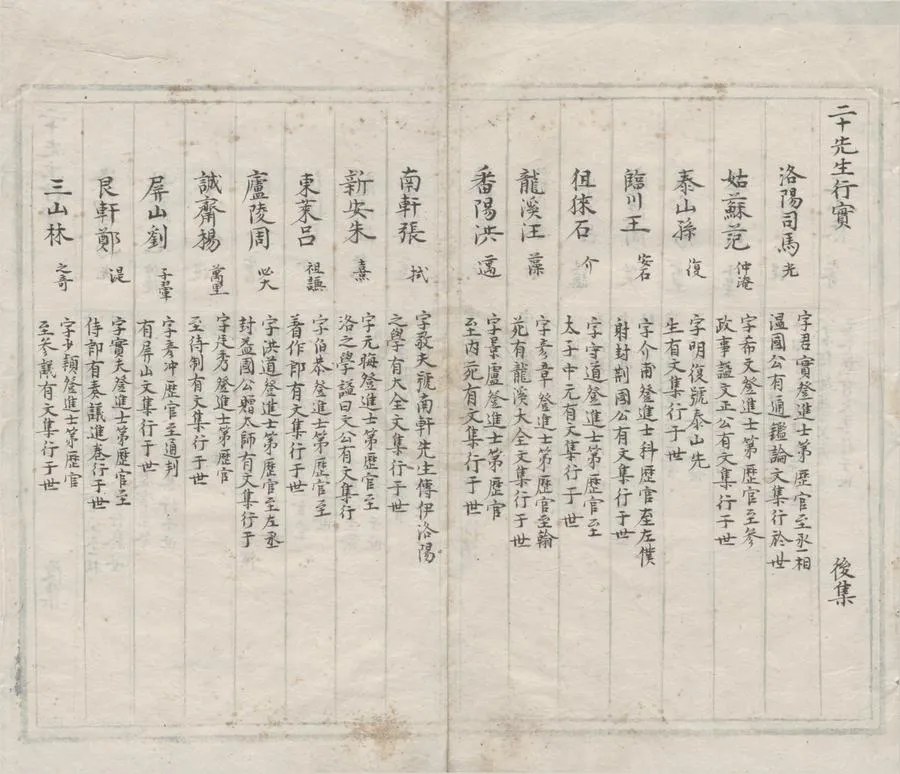 二十先生行實 後集
洛陽司馬光 字君實登進士第歷官至丞相
温國公有通鑑論文集行於世
姑蘇范仲淹 字希文登進士第歷官至參
政事謚文正公有文集行于世
泰山孫復 字明復號泰山先
生有文集行于世
臨川王安石 字介甫登進士科歷官至左僕
射封荆國公有文集行于世
徂徠石介 字守道登進士第歷官至
太子中元有文集行于世
龍溪汪藻 字彥章登進士第歷官至翰
苑有龍溪大全文集行于世
番陽洪邁 字景盧登進士第歷官
至内苑有文集行于世
南軒張栻 字敬夫號南軒先生傳伊洛陽
之學有大全文集行于世
新安朱熹 字元晦登進士第歷官至
洛之學謚曰文公有文集行
東萊呂祖謙 字伯恭登進士第歷官至
著作郎有文集行于世
廬陵周必大 字洪道登進士第歷官至左丞
封益國公贈太師有文集行于
誠齋楊萬里 字廷秀登進士第歷官
至待制有文集行于世
屏山劉子翬 字彥冲歷官至通判
有屏山文集行于世
艮軒鄭湜 字實夫登進士第歷官至
侍郎有奏議進卷行于世
三山林之奇 字少穎登進士第歷官
至參議有文集行于世